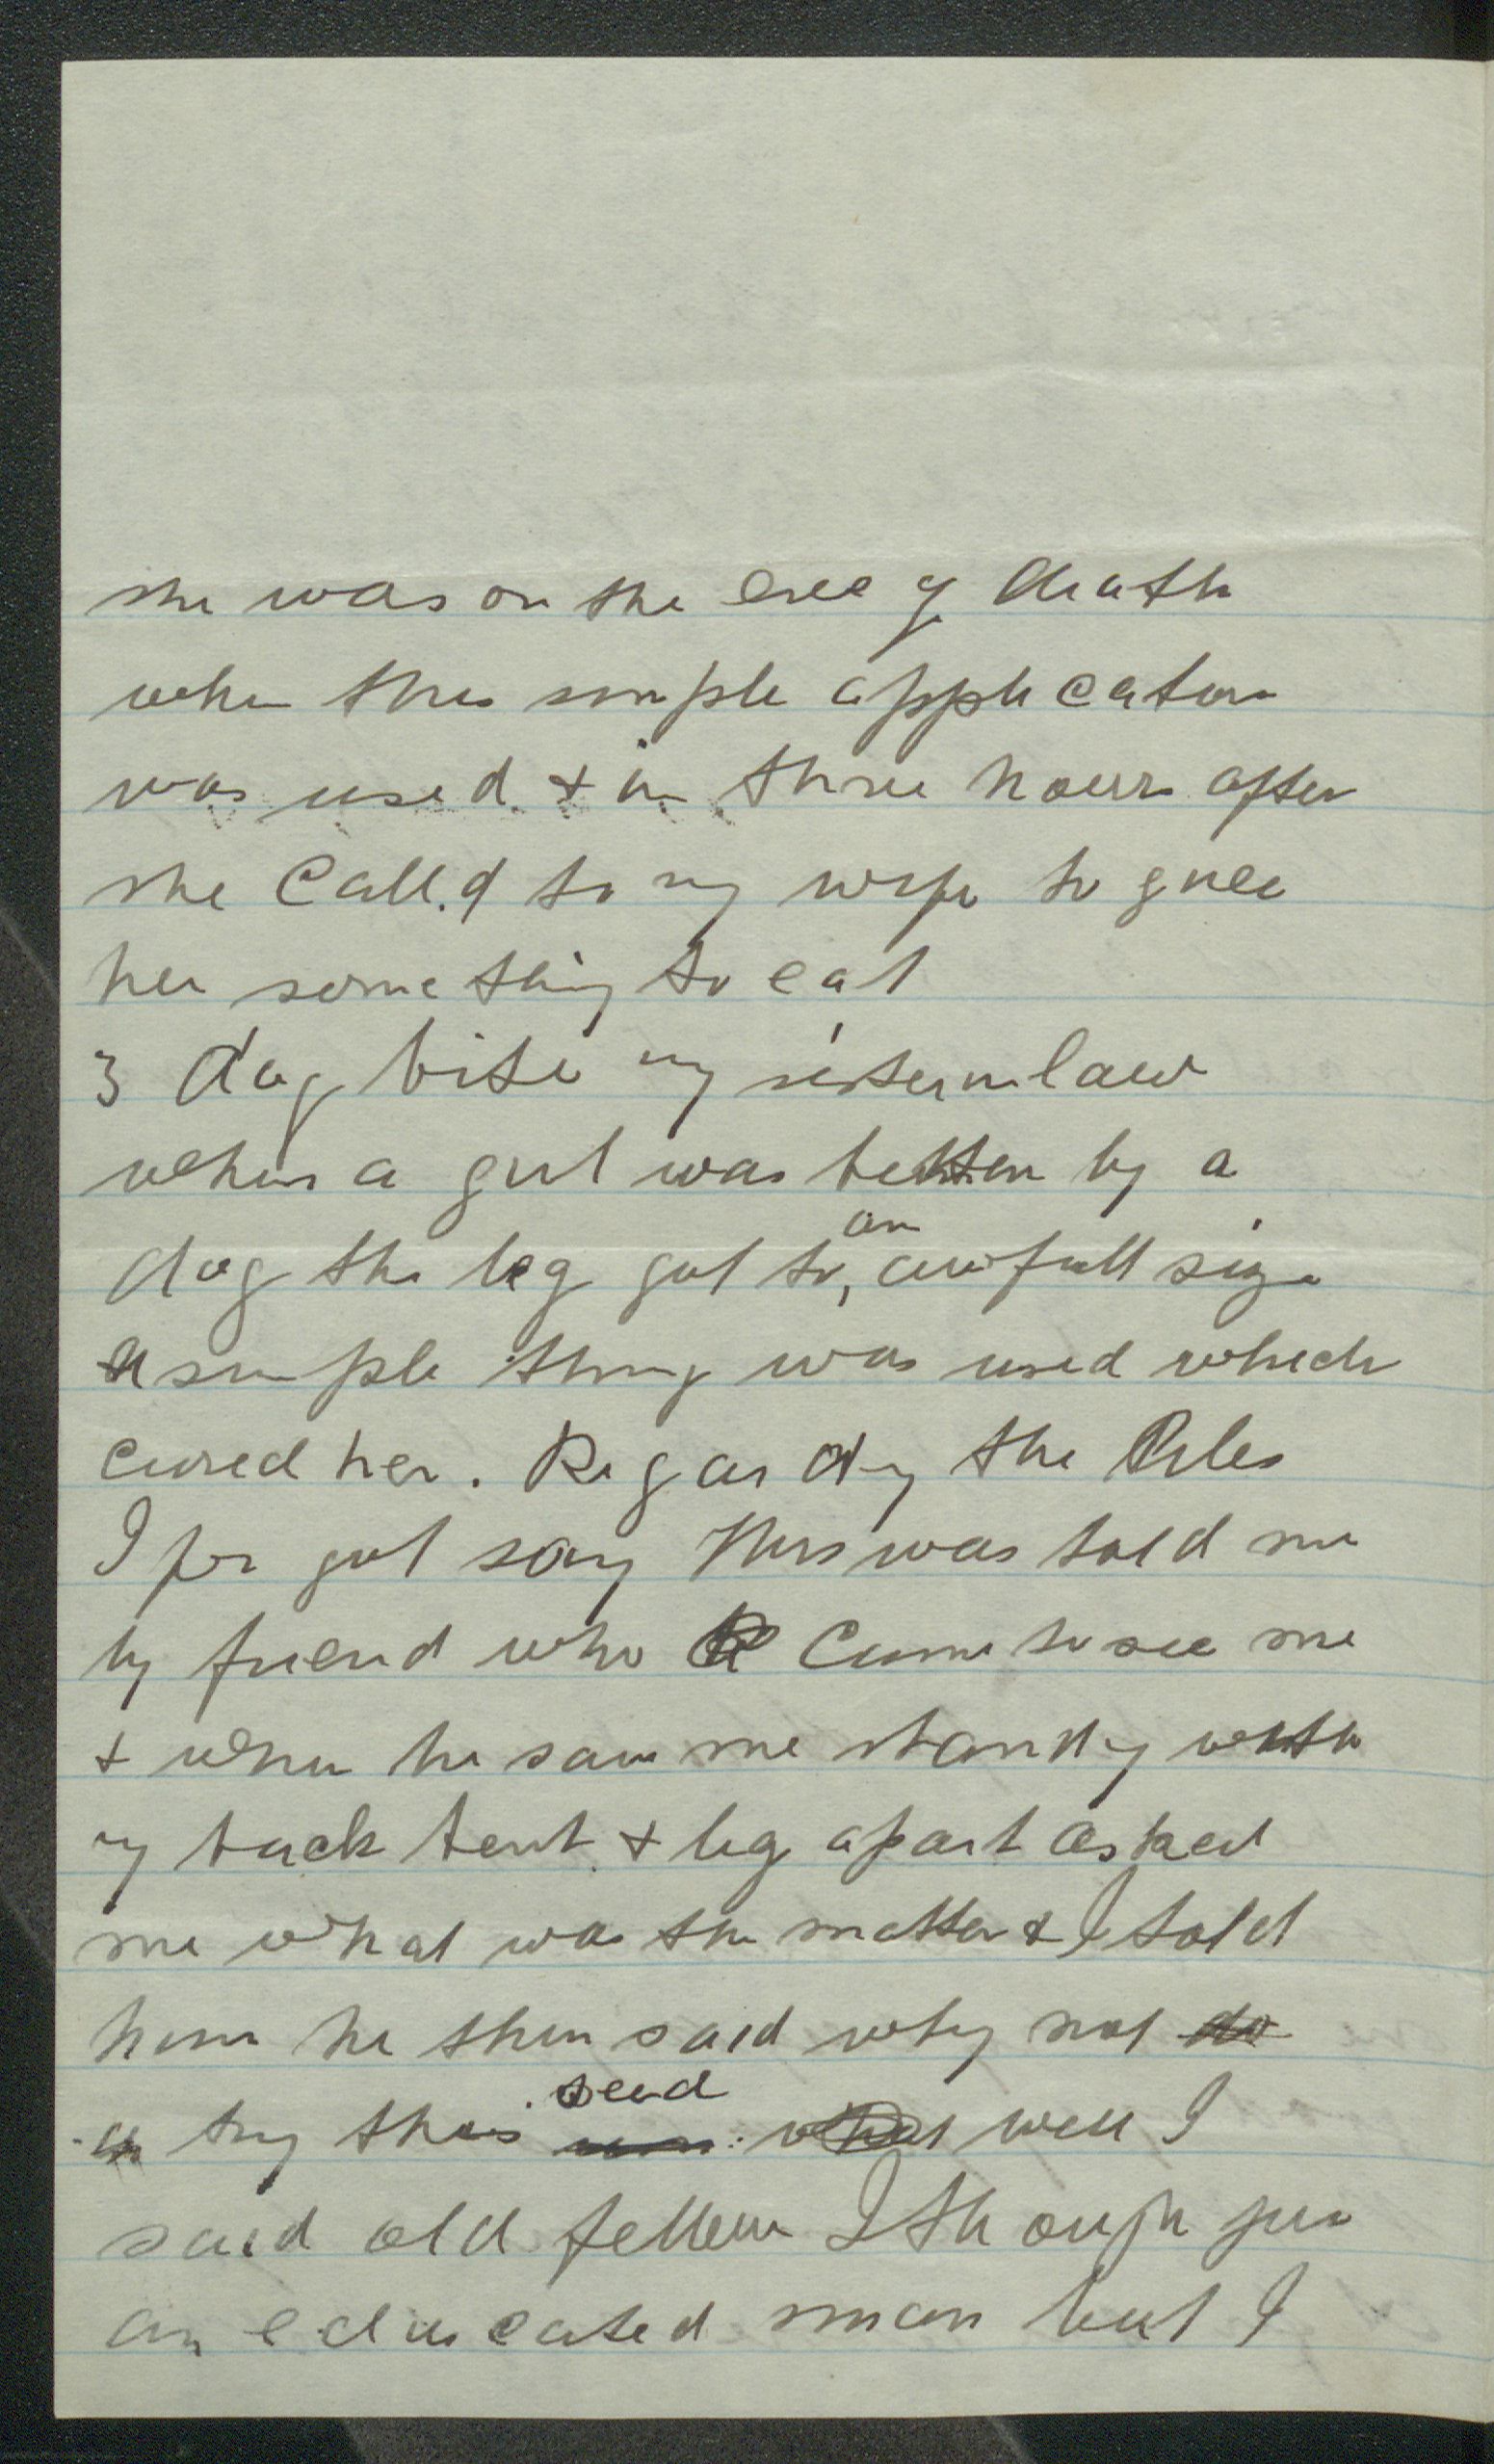 she was on the eve of death
when this simple application
was used & in three hours after
she Called to my wife to give
her some thing to eat
3 dog bite my sister in law
when a girl was bitten by a
dog the leg got to an awfull size
a simple thing was used which
cured her. Regarding the Piles
I for got say this was told me
by friend who came to see me
& when he saw me standing with
my back bent & leg apart asked
me what was the matter & I told
him he then said why not do
try this seed what well I
said old fellow I though you
an educated man but I